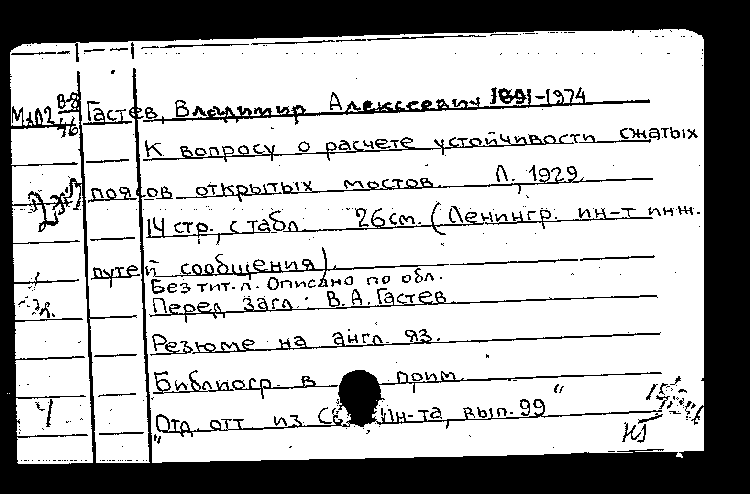 Гастев, Владимир Алексеевич 1891-1974
К вопросу о расчете устойчивости сжатых
поясов открытых мостов. Л., 1929.
14 стр., с табл. 26 см. (Ленингр. ин-т инж.
путей сообщения).
Без тит. л. Описано по обл.
Перед загл.: В.А. Гастев
Резюме на англ. яз.
Библиогр. в прим.
"Отд. отт. из Сб. Ин-та, вып. 99"